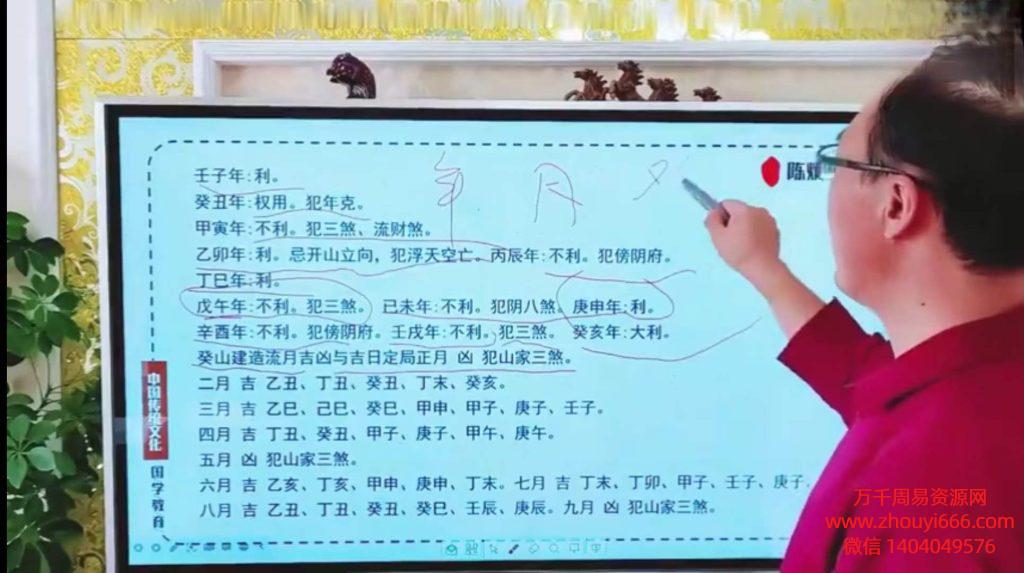 陈
年 月
壬子年:利。
癸丑年:权用。犯年克。
甲寅年:不利。犯三煞、流财煞。
乙卯年:利。忌开山立向，犯浮天空亡。丙辰年:不利。犯傍阴府。
丁巳年:利。
戊午年:不利。犯三煞。 已未年:不利。犯阴八煞。庚申年:利。
辛酉年:不利。犯傍阴府。壬戌年:不利。犯三煞。 癸亥年:大利。
癸山建造流月吉凶与吉日定局正月 凶 犯山家三煞。
二月 吉 乙丑、丁丑、癸丑、丁末、癸亥。
三月 吉 乙巳、己巳、癸巳、甲申、甲子、庚子、壬子。
四月 吉 丁丑、癸丑、甲子、庚子、甲午、庚午。
五月 凶 犯山家三煞。
六月 吉 乙亥、丁亥、甲申、庚申、丁末。七月 吉 丁末、丁卯、甲子、壬子、庚子、
八月 吉 乙丑、丁丑、癸丑、癸巳、壬辰、庚辰。九月 凶 犯山家三煞。
中国传统文化
国学教育
万千周易资源网
www.zhouyi666.com
微信 1404049576